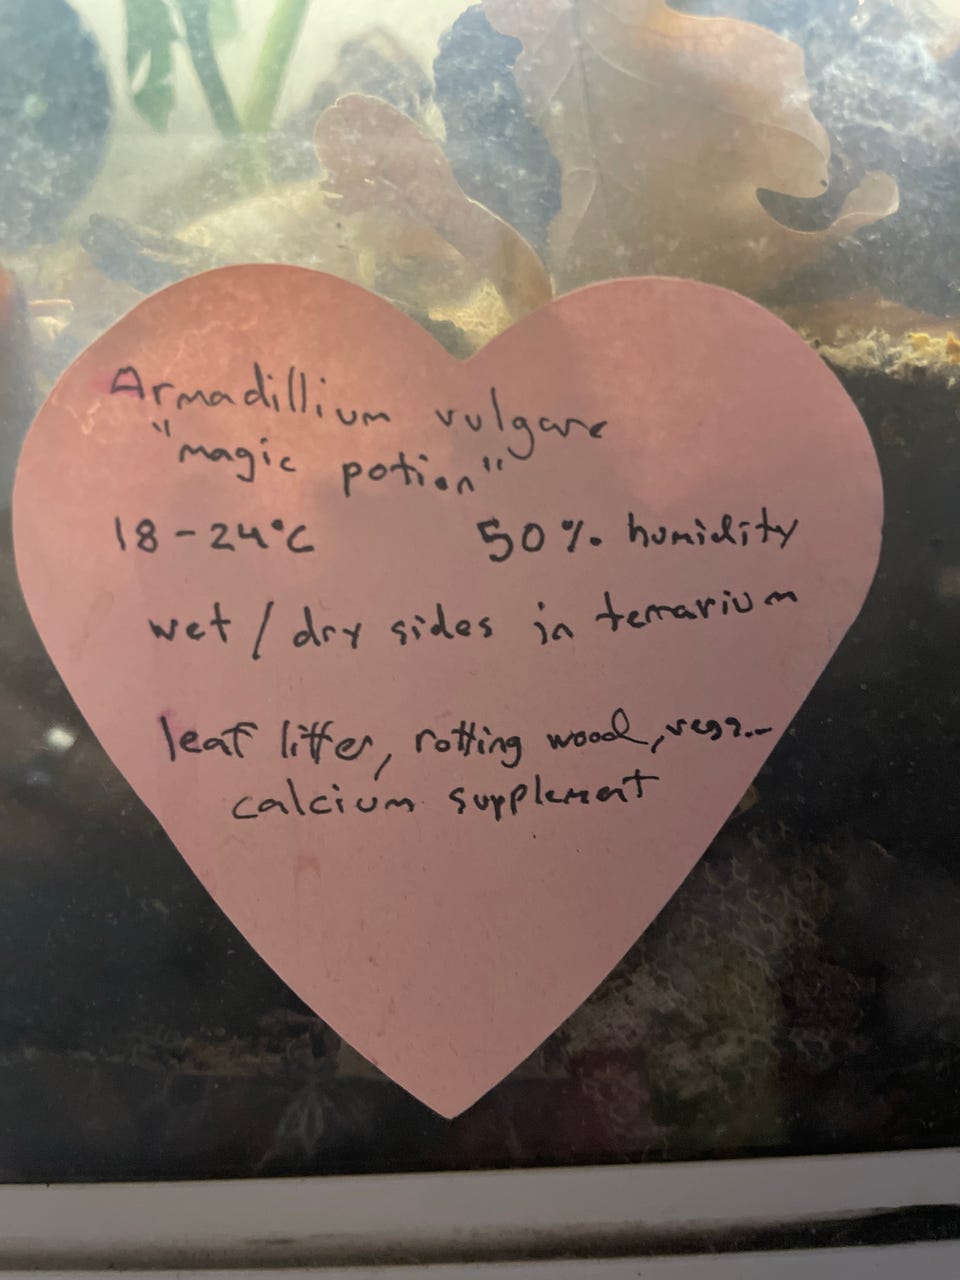 Armadillium vulgare
"magic potion"
18-24°C 50% humidity
wet/dry sides in terrarium
leaf litter, rotting wood,
calcium supplement